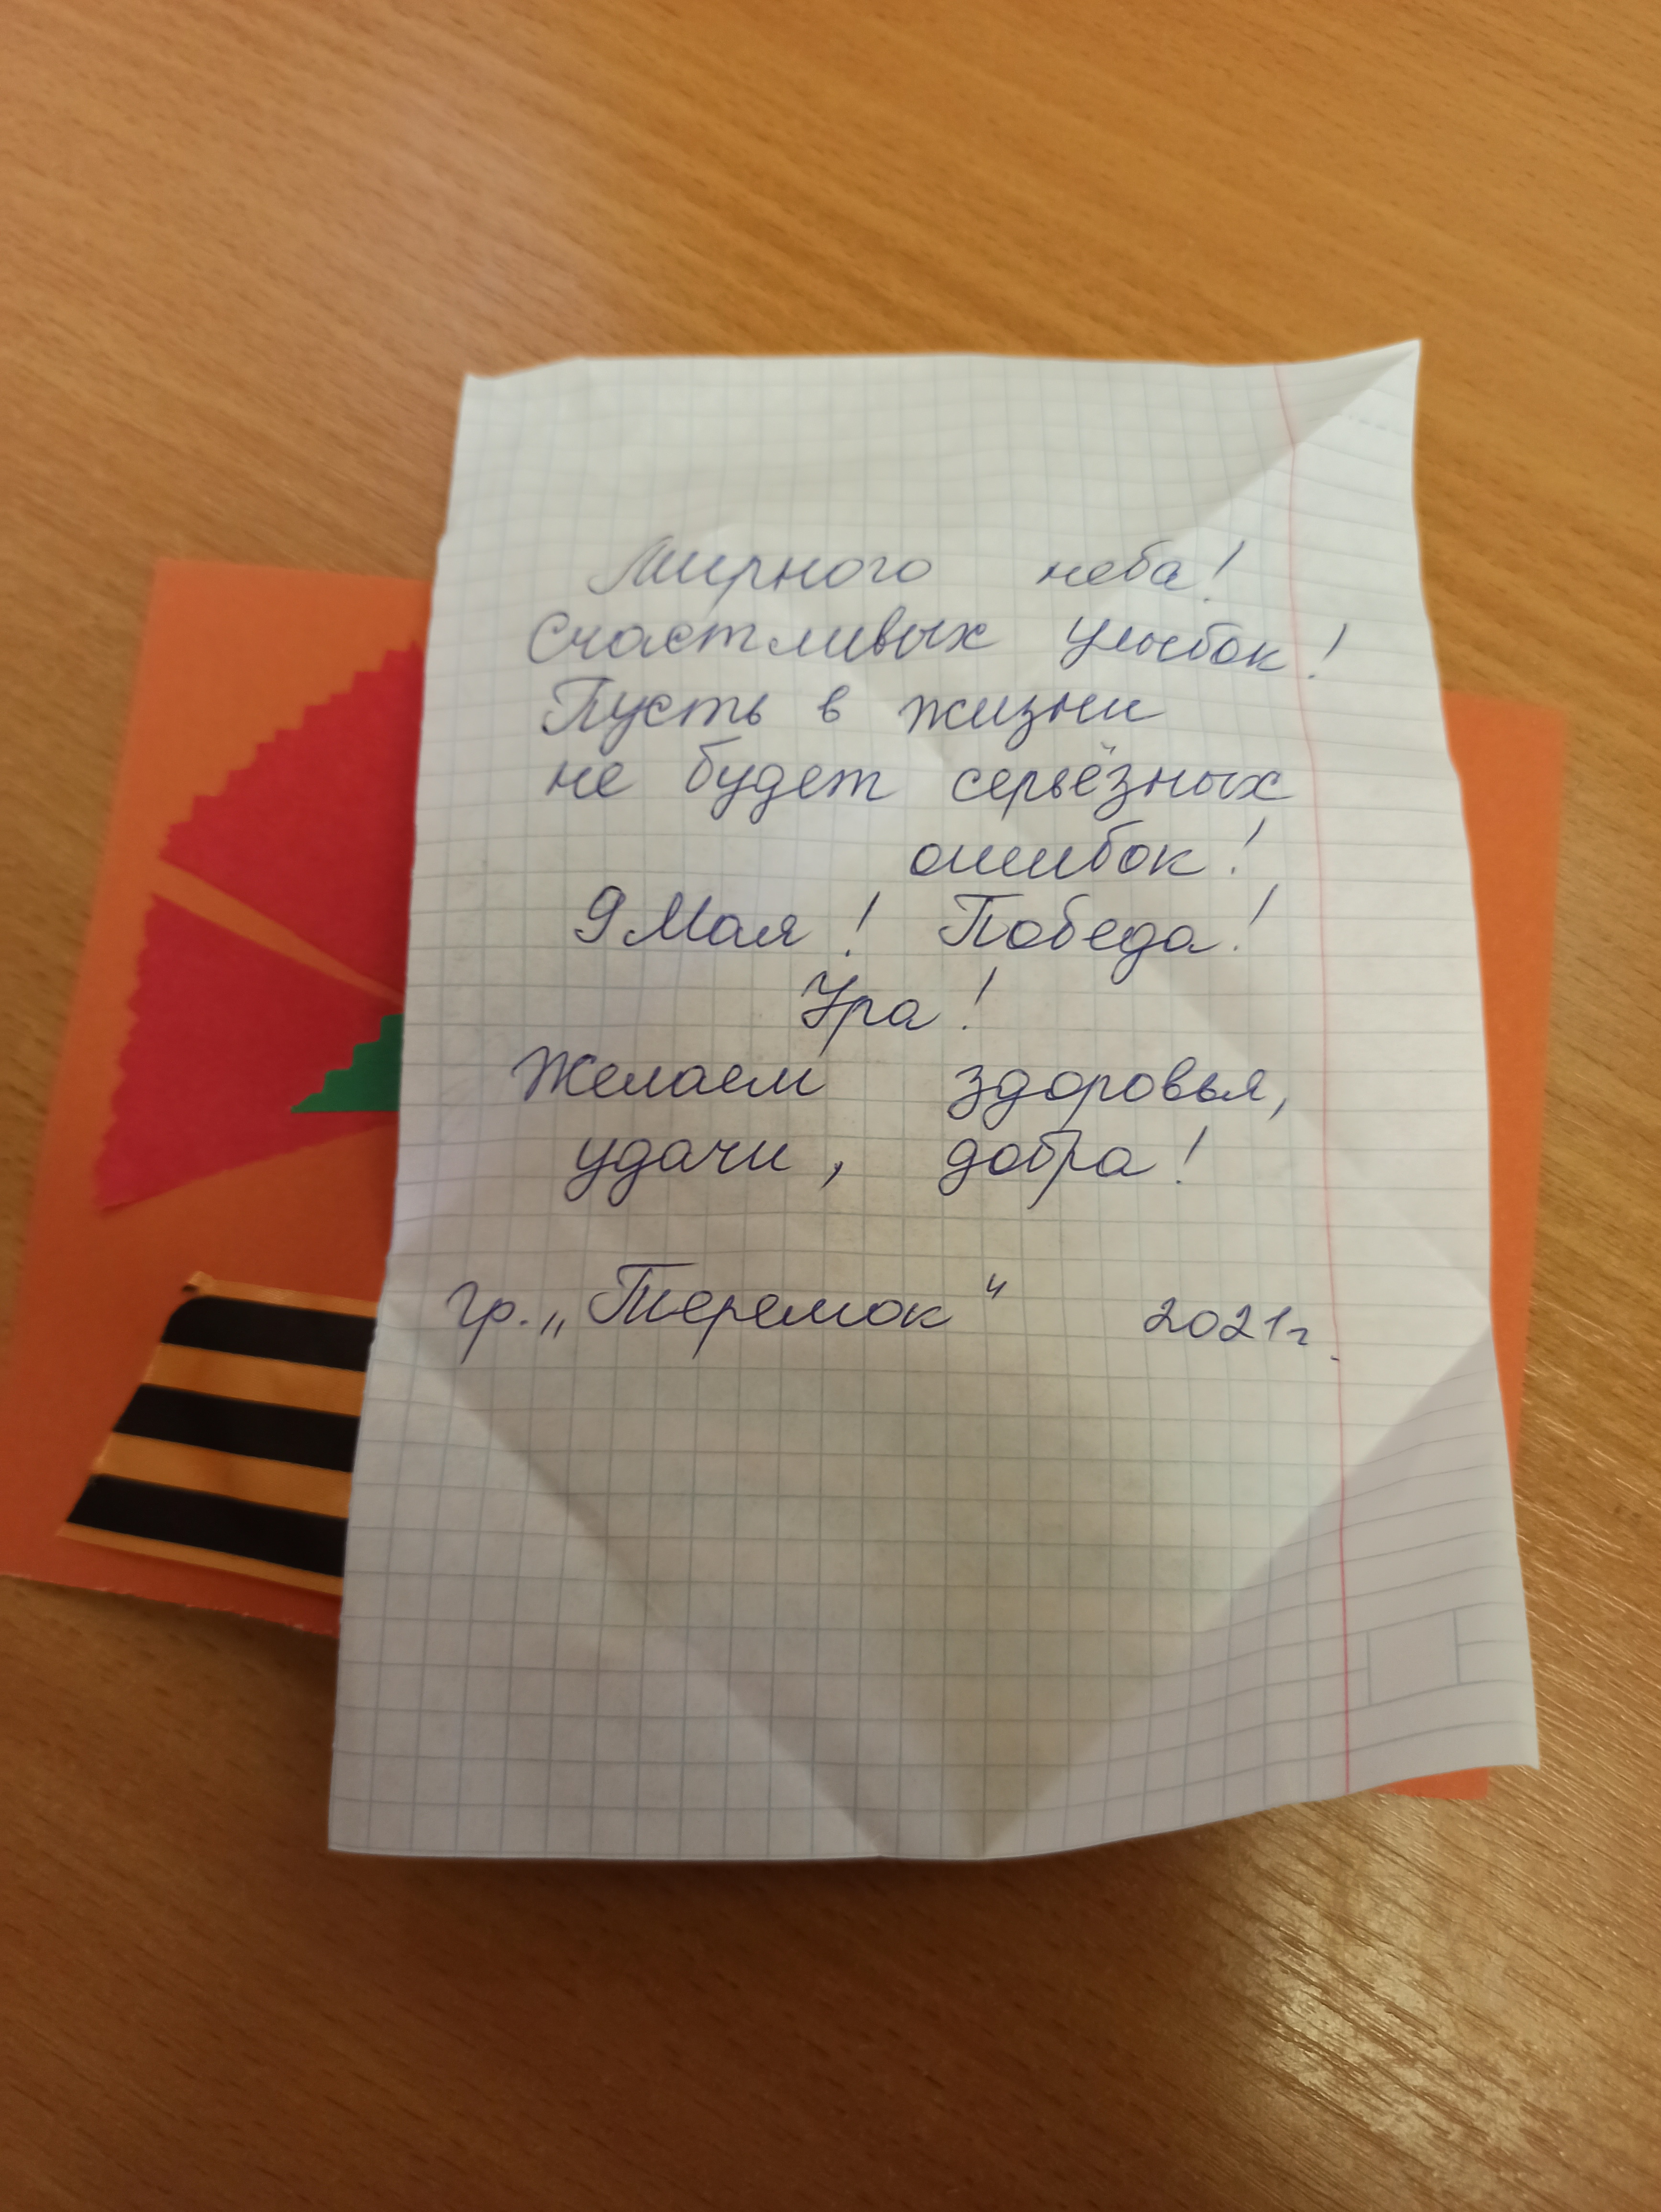 Мирного неба!
Счастливых улыбок!
Пусть в жизни
не будет серьёзных
ошибок!
9 Мая! Победа!
Ура!
Желаем здоровья,
удачи, добра!
гр. „Теремок“ 2021г.